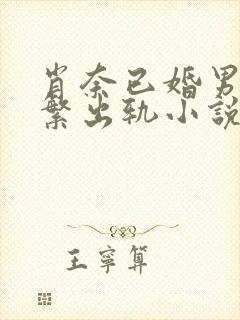 肖奈已婚男
繁出轨小説
王寧算